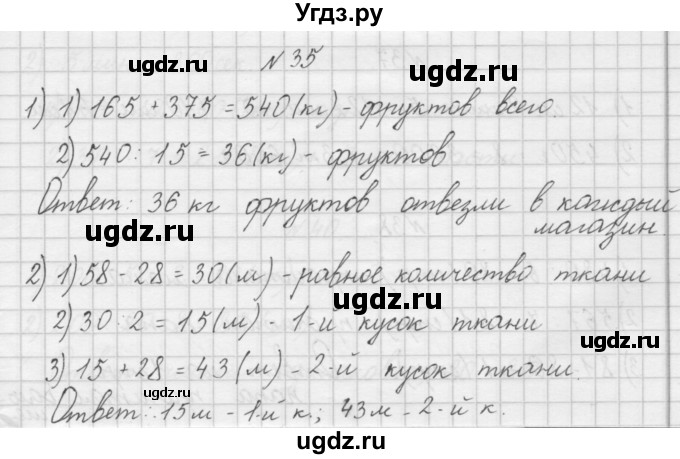 Угдз.ру
№ 35
1) 1) 165 + 375 = 540 (кг) - фруктов всего.
2) 540 : 15 = 36 (кг) - фруктов
Ответ: 36 кг фруктов отвезли в каждый
магазин.
2) 1) 58 - 28 = 30 (м) - равное количество ткани
2) 30 : 2 = 15 (м) - 1-й кусок ткани
3) 15 + 28 = 43 (м) - 2-й кусок ткани.
Ответ: 15 м - 1-й к.; 43 м - 2-й к.
ugdz.ru
ugdz.ru
ugdz.ru
ugdz.ru
ugdz.ru
ugdz.ru
ugdz.ru
ugdz.ru